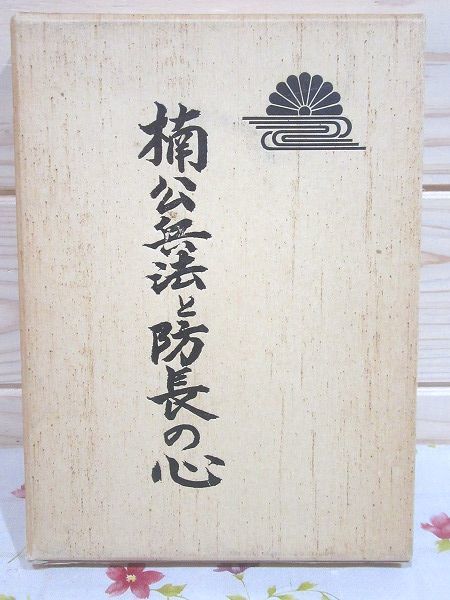 楠公兵法と防長の心